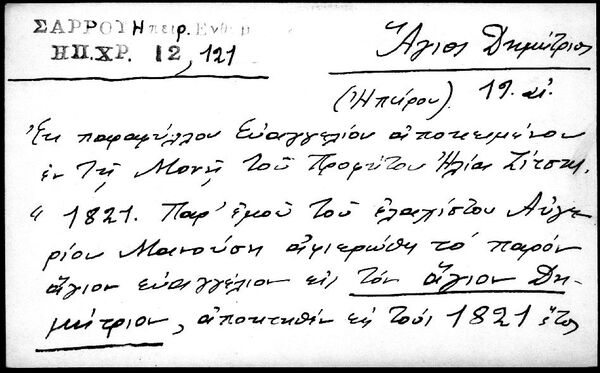 ΣΑΡΡΟΥ Ηπειρ. Ενθυμ
ΗΠ.ΧΡ. 12, 121
Ἅγιος Δημήτριος
(Ἠπείρου). 19. αἰ.
Ἐκ παραφύλλου Εὐαγγελίου ἀποκειμένου
ἐν Τῇ Μονῇ Τοῦ Προφήτου Ἠλία Ζίτσης.
" 1821. Παρ' ἐμοῦ Τοῦ ἐλαχίστου Αὐγε-
ρίου Μανούση ἀφιερώθη τὸ παρὸν
ἅγιον εὐαγγέλιον εἰς τὸν ἅγιον Δη-
μήτριον, ἀποκτηθὲν εἰς Τοὺς 1821 ἔτος